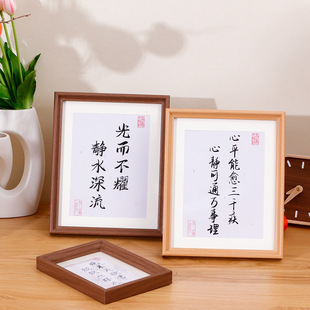 光而不耀
静水深流
心平能愈三千疾
心静可通万事理